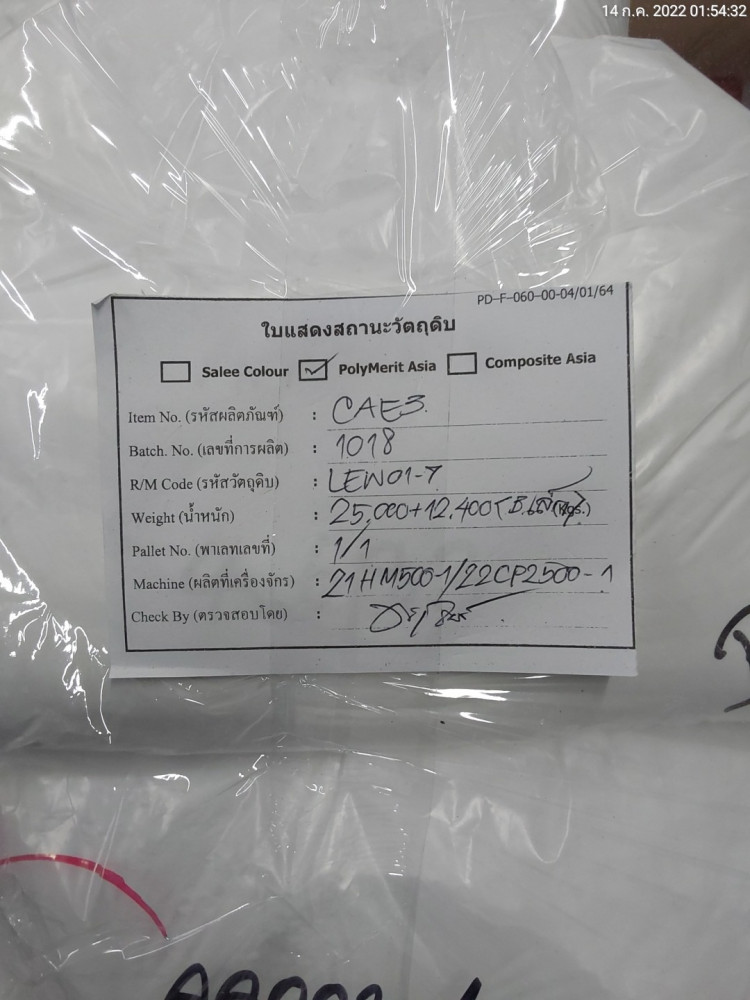 14 ก.ค. 2022 01:54:32
PD-F-060-00-04/01/64
ใบแสดงสถานะวัตถุดิบ
Salee Colour PolyMerit Asia Composite Asia
Item No. (รหัสผลิตภัณฑ์) : CAE3
Batch. No. (เลขที่การผลิต) : 1018
R/M Code (รหัสวัตถุดิบ) : LEW01-7
Weight (น้ำหนัก) : 25.000+12.400 (Kgs.)
Pallet No. (พาเลทเลขที่) : 1/1
Machine (ผลิตที่เครื่องจักร) : 21HM500-1/22CP2500-1
Check By (ตรวจสอบโดย) :